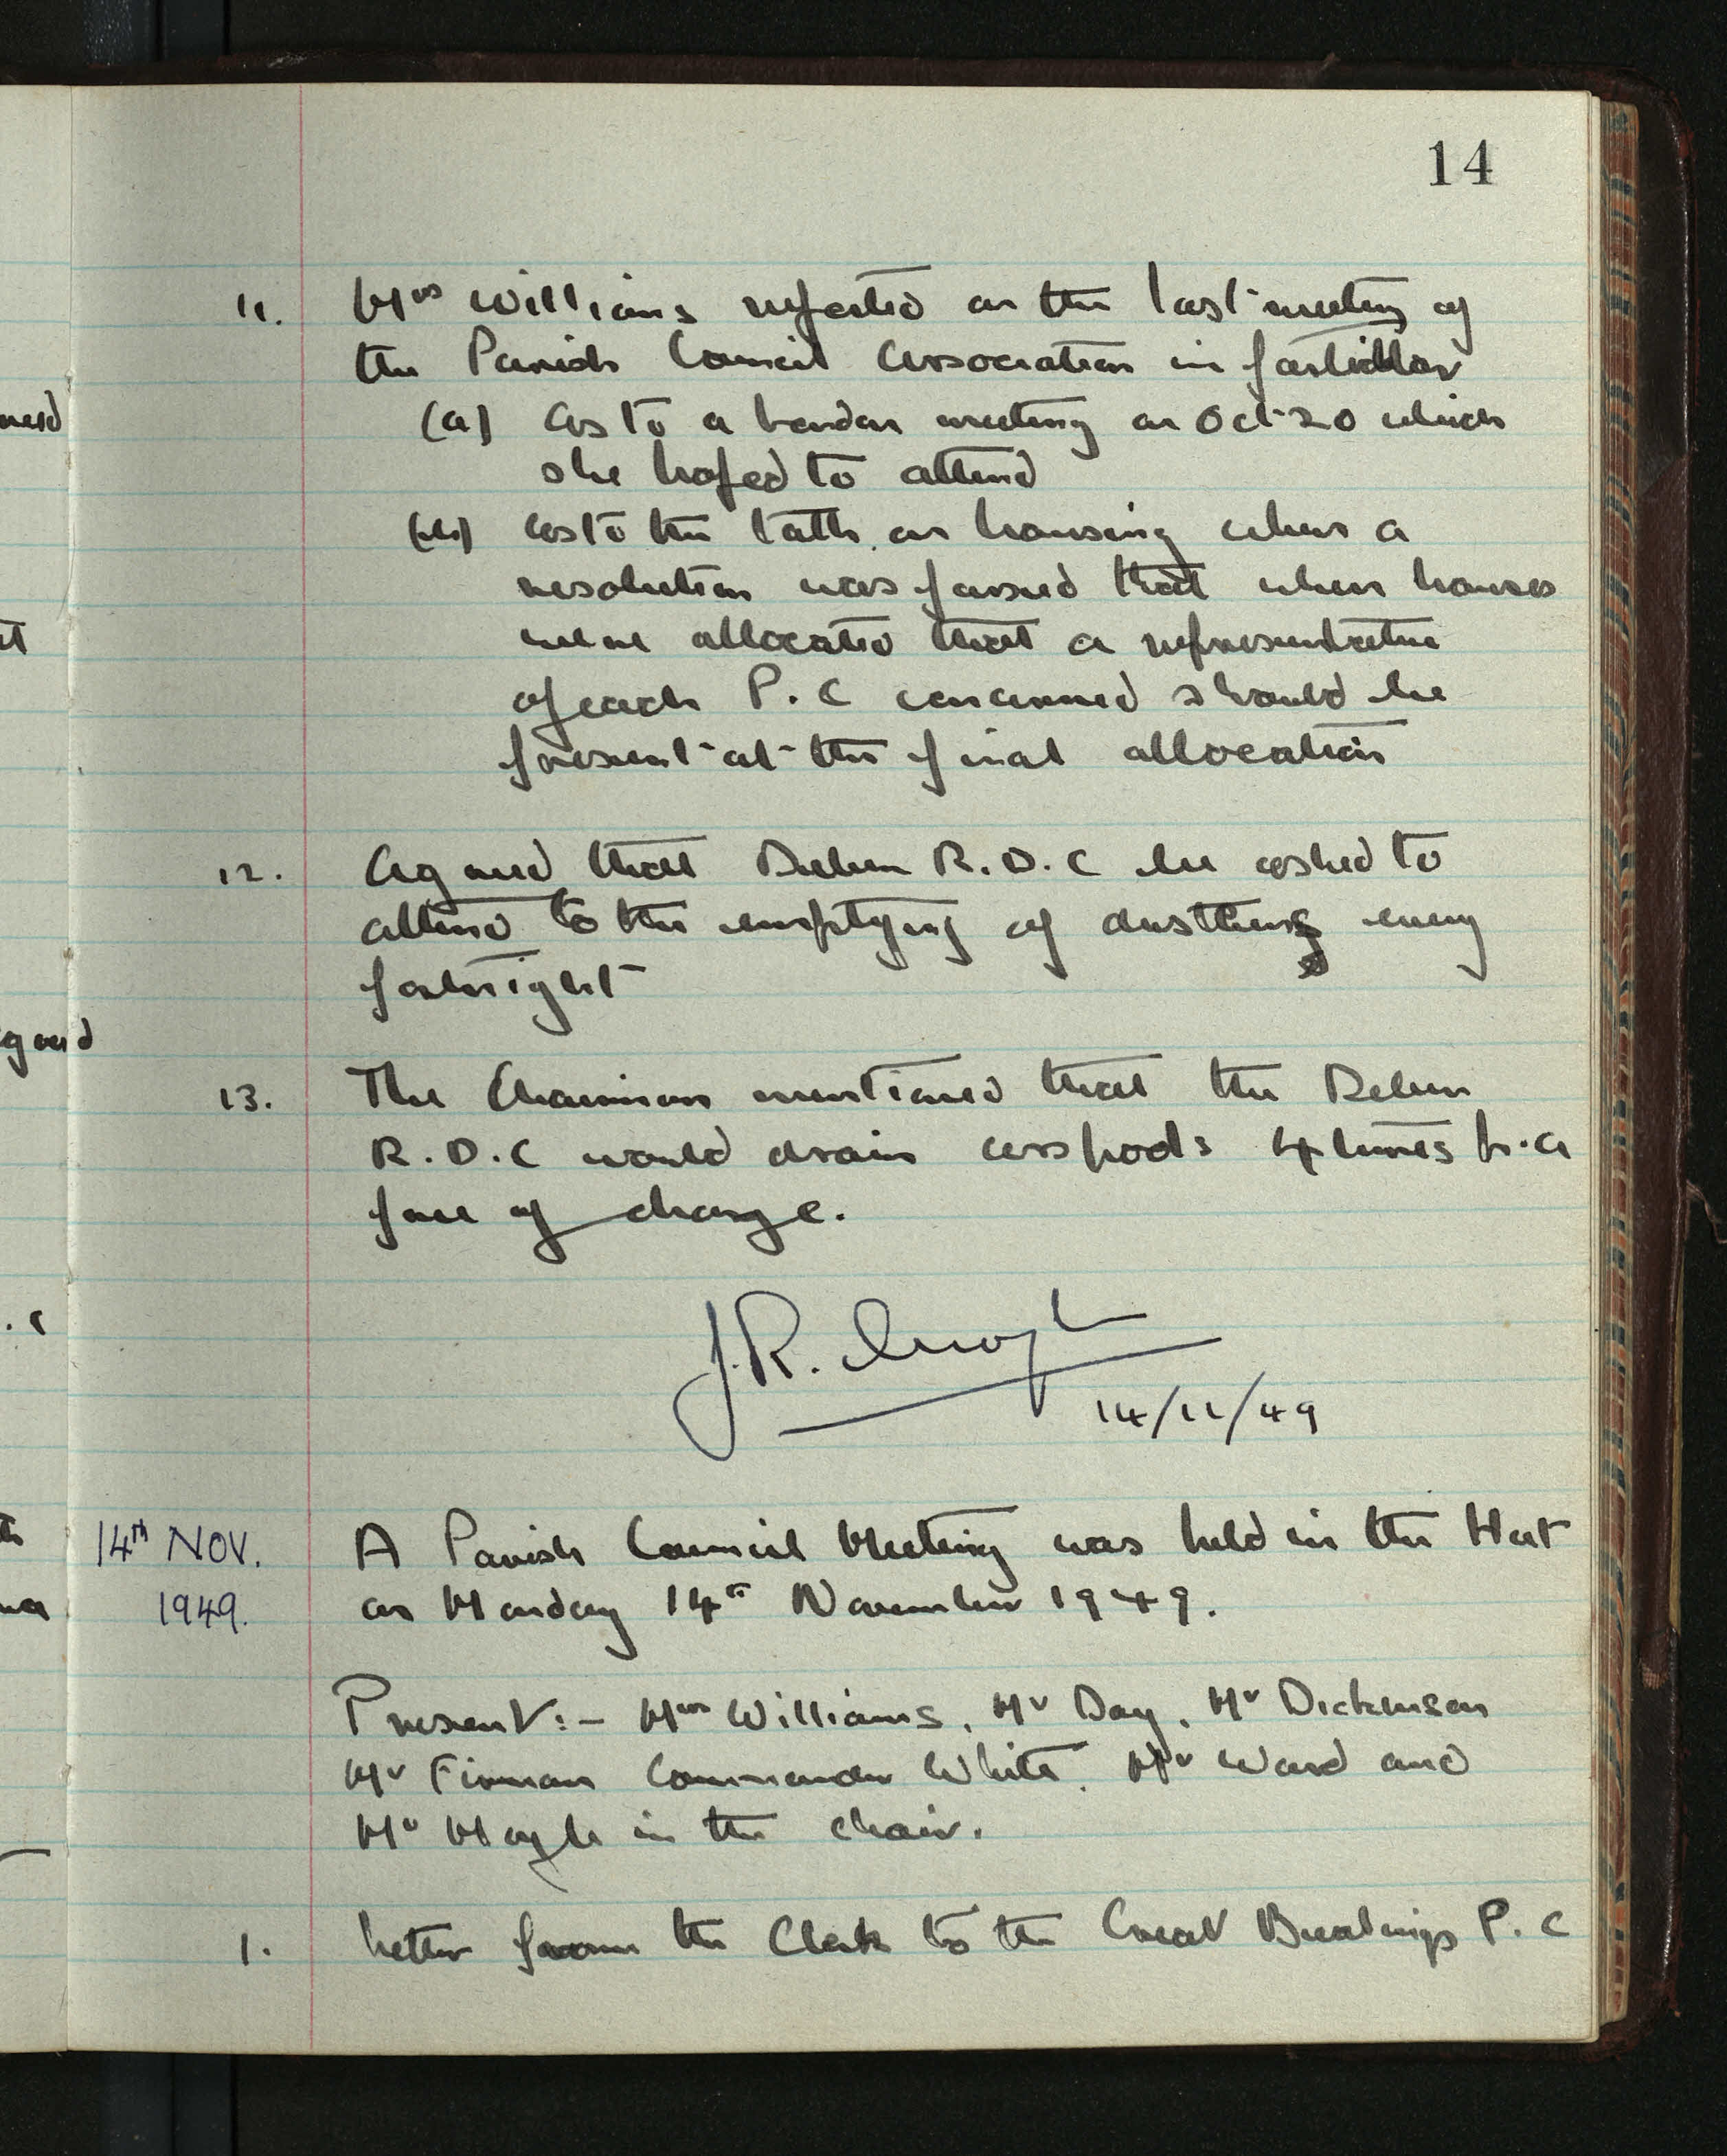 14
11. Mrs Williams reported on the last meeting of
the Parish Council Association in particular
(a) As to a London meeting on Oct 20 which
she hoped to attend
(b) As to the talk on housing when a
resolution was passed that when houses
were allocated that a representative
of each P.C concerned should be
present at the final allocation
12. Agreed that Deben R.D.C be asked to
attend to the emptying of dustbins every
fortnight
13. The Chairman mentioned that the Deben
R.D.C would drain cesspools 4 times p.a
free of charge.
J.R.
14/11/49
14th NOV. 1949.
A Parish Council Meeting was held in the Hut
on Monday 14th November 1949.
Present:- Mrs Williams, Mr Day, Mr Dickenson
Mr Firman Commander White. Mr Ward and
Mr in the chair.
1. Letter from the Clerk to the Great Bealings P.C